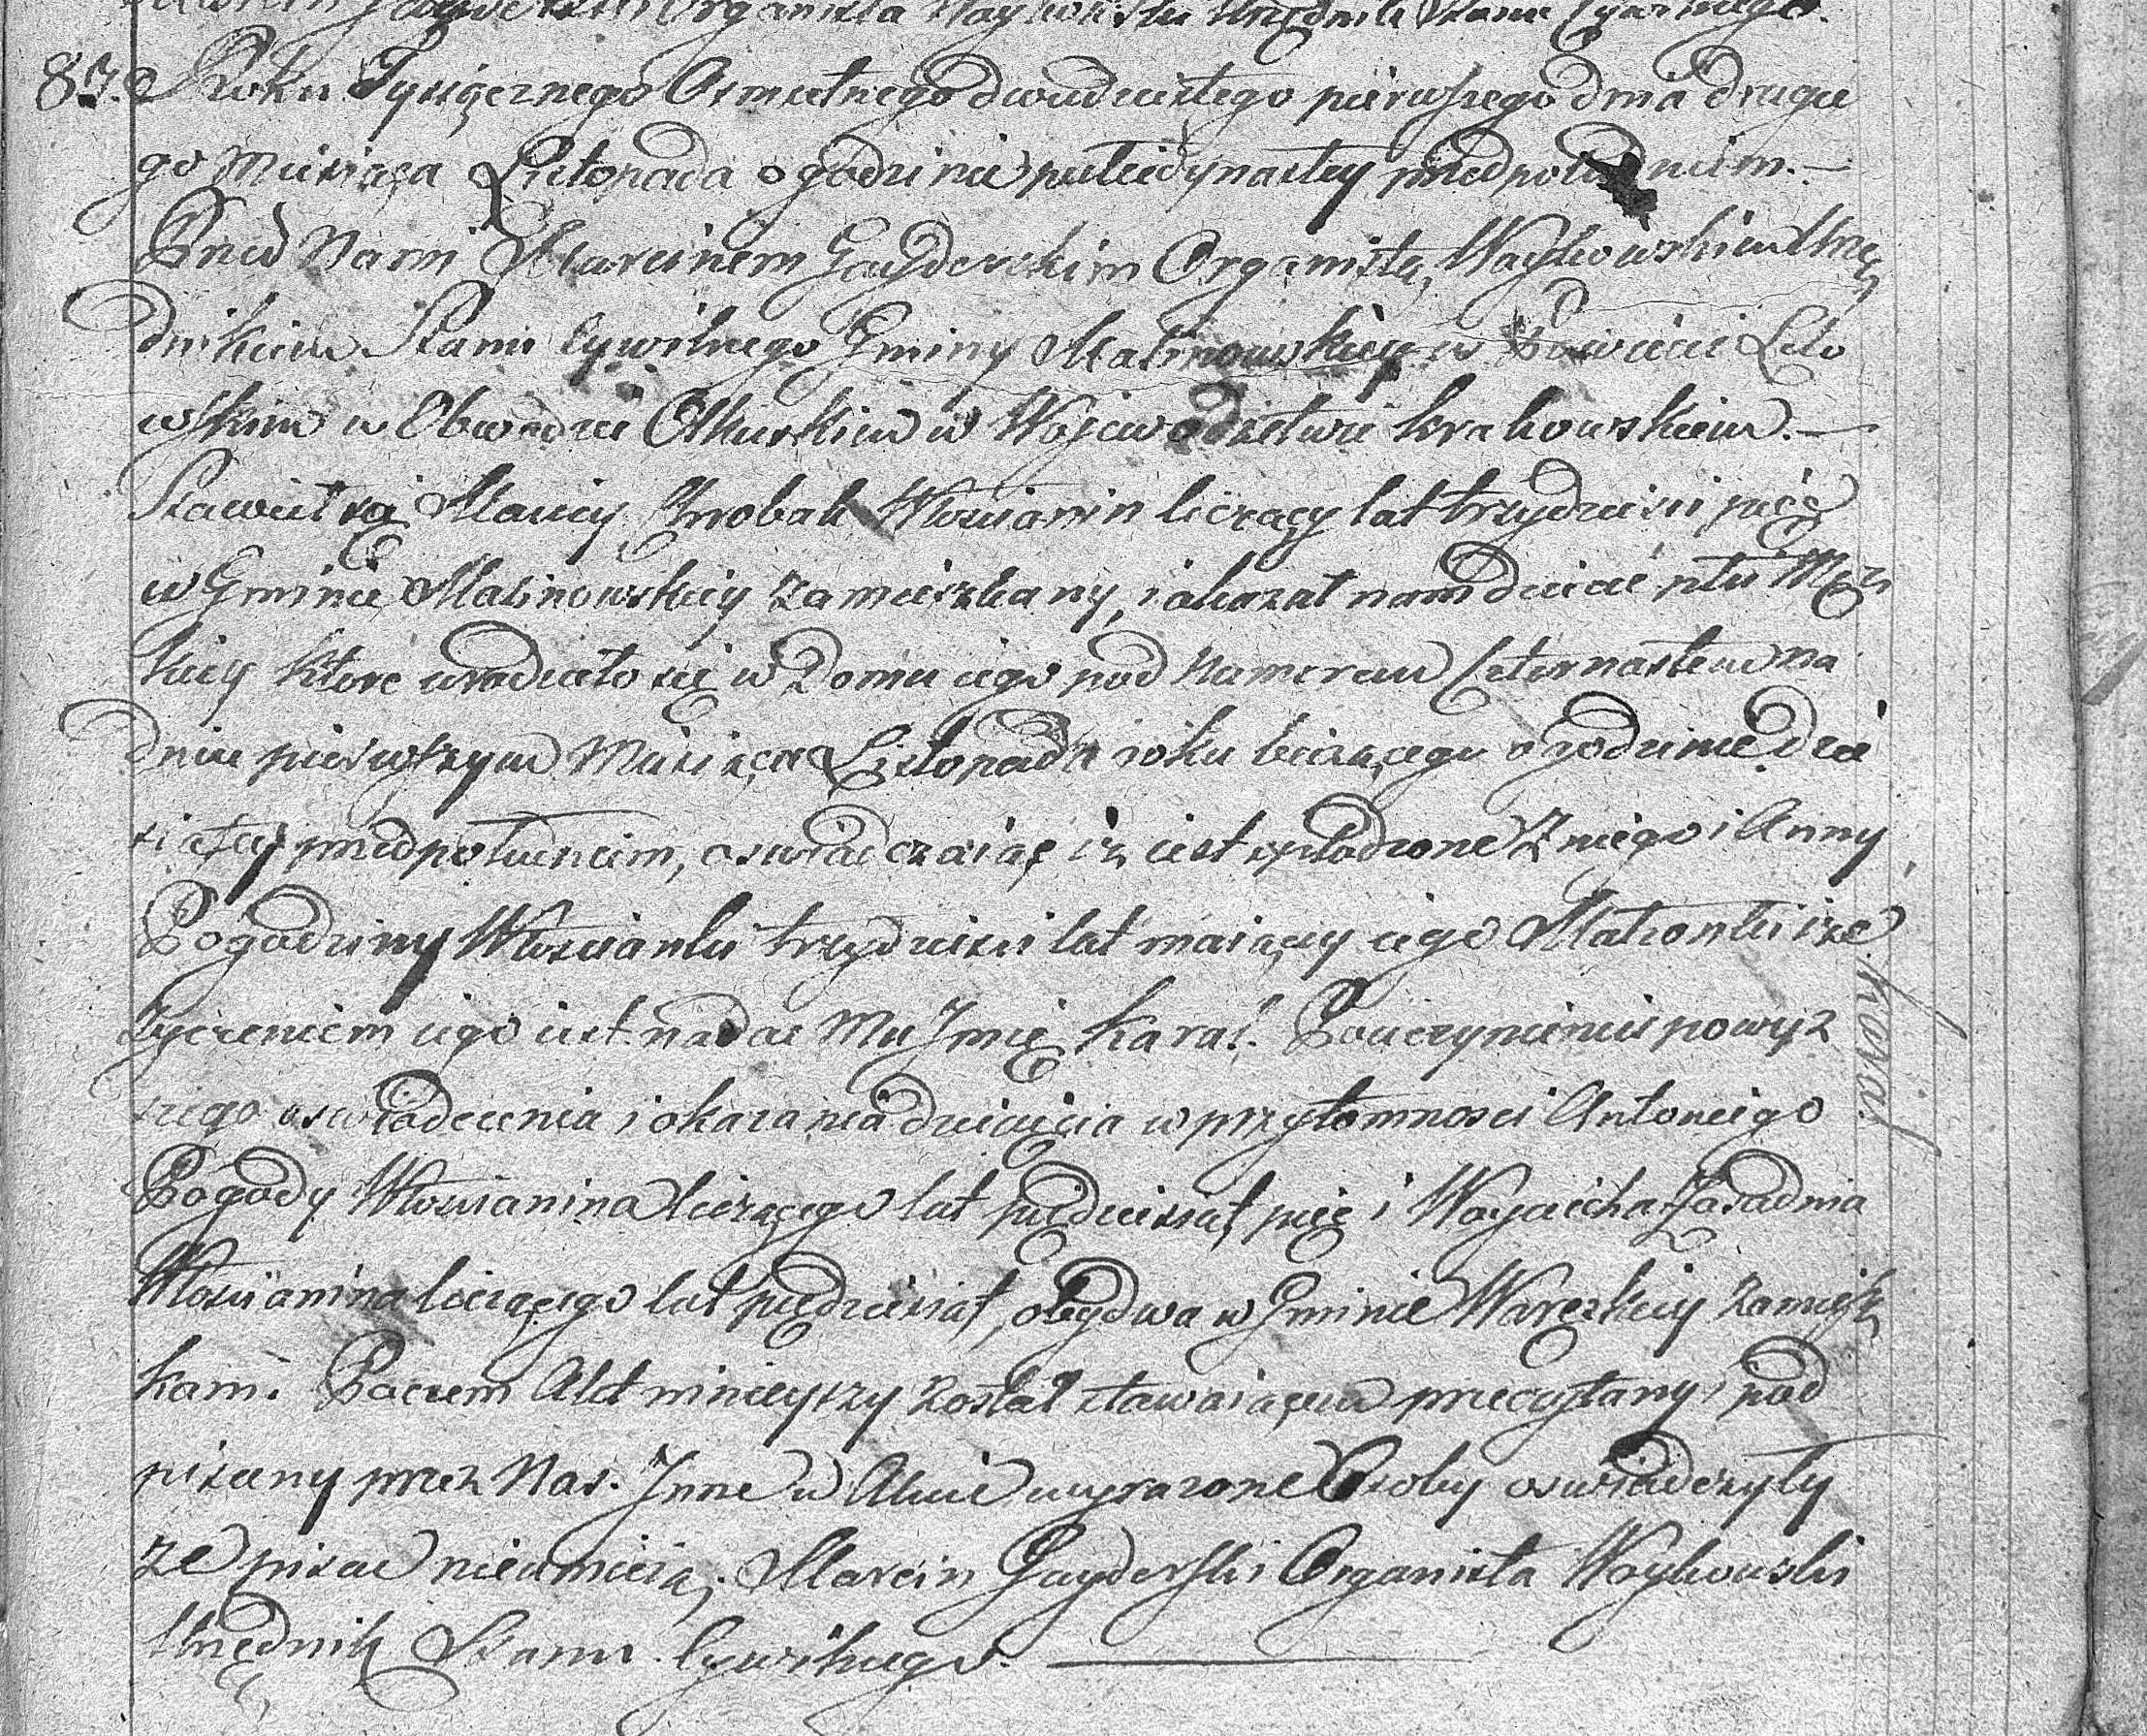 Organista Urzędnik Stanu Cywilnego.
87. Roku Tysiącznego Osmsetnego dwudziestego pierwszego dnia drugie
go Miesiąca Listopada o godzinie jedynastey przed południem. —
Przed Nami Marcinem Gayderskim Organistą Urzę
dnikiem Stanu Cywilnego Gminy Malinowskiey w Powiecie Lelo
wskim w Obwodzie Olkuskim w Wojewodztwie krakowskiem. —
Stawił się Maciey Chrobak Włościanin liczący lat trzydzieści pięć
w Gminie Malinowskiey zamieszkany, i okazał nam dziecie płci Męz
kiey które urodzieło się w Domu iego pod Numerem Czternastem na
dniu pierwszym Miesiąca Listopada roku bieżącego o godzinie dzie
siątey przed południem, oswiadczaiąc iż iest spłodzone z niego i Anny
Pogodziny Włościanki trzydzieści lat maiącey iego Małżonki i że
życzeniem iego iest nadać Mu Jmię Karol. Po uczynieniu powyż
szego oswiadczenia i okazania dziecięcia w przytomności Antoniego
Pogody Włościanina liczącego lat pięćdziesiąt pięć i Woyciecha Zasadnia
Włościanina liczącego lat pięćdziesiąt, obydwa w Gminie zamiesz
kami. Poczem Akt ninieyszy został stawaiącem przeczytany i pod
pisany przez Nas. Jnne w Akcie wyrażone Osoby oswiadczyły
że pisać nieumieią. Marcin Gayderski Organista
Urzędnik Stanu Cywilnego.